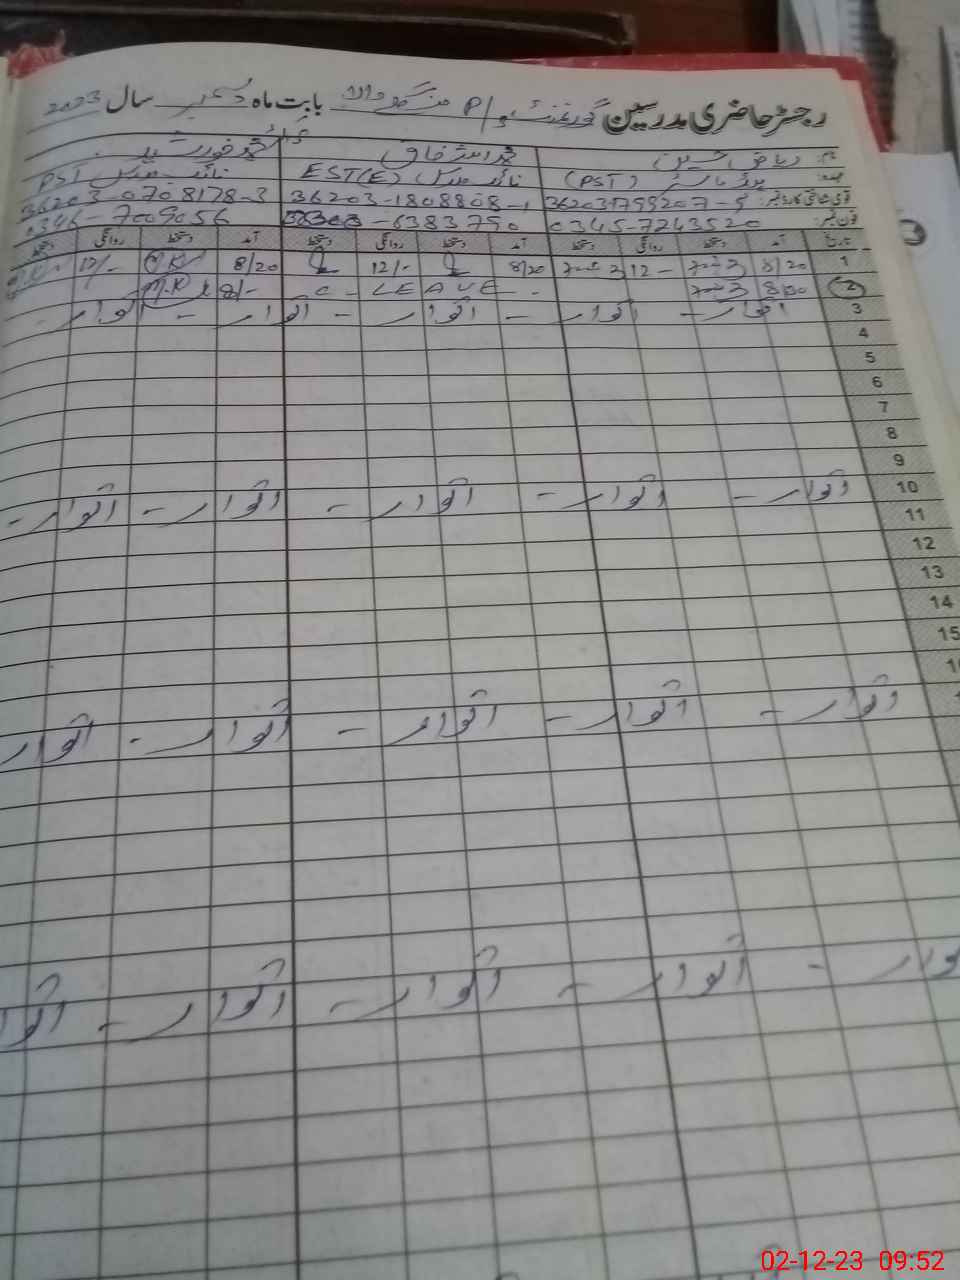 رجسٹر حاضری مدرسین گورنمنٹ P/S منگو والا بابت ماہ دسمبر سال 2023
نام: ریاض حسین محمد اسحاق محمد خورشید
عہدہ: ہیڈ ماسٹر (PST) نائب مدرس EST(E) نائب مدرس PST
قومی شناختی کارڈ نمبر: 362031799207-5 36203-1808808-1 36203-0708178-3
فون نمبر: 0345-7243520 -6383790 0346-7009056
تاریخ آمد دستخط روانگی دستخط آمد دستخط روانگی دستخط آمد دستخط روانگی دستخط
1 8/20 12- 8/20 12/- 8/20 12/-
2 8/00 C- LEAVE - 8/-
3 اتوار - اتوار - اتوار - اتوار - اتوار -
4
5
6
7
8
9
10 اتوار - اتوار - اتوار - اتوار - اتوار -
11
12
13
14
15
اتوار - اتوار - اتوار - اتوار - اتوار
اتوار - اتوار - اتوار - اتوار - اتوار
02-12-23 09:52